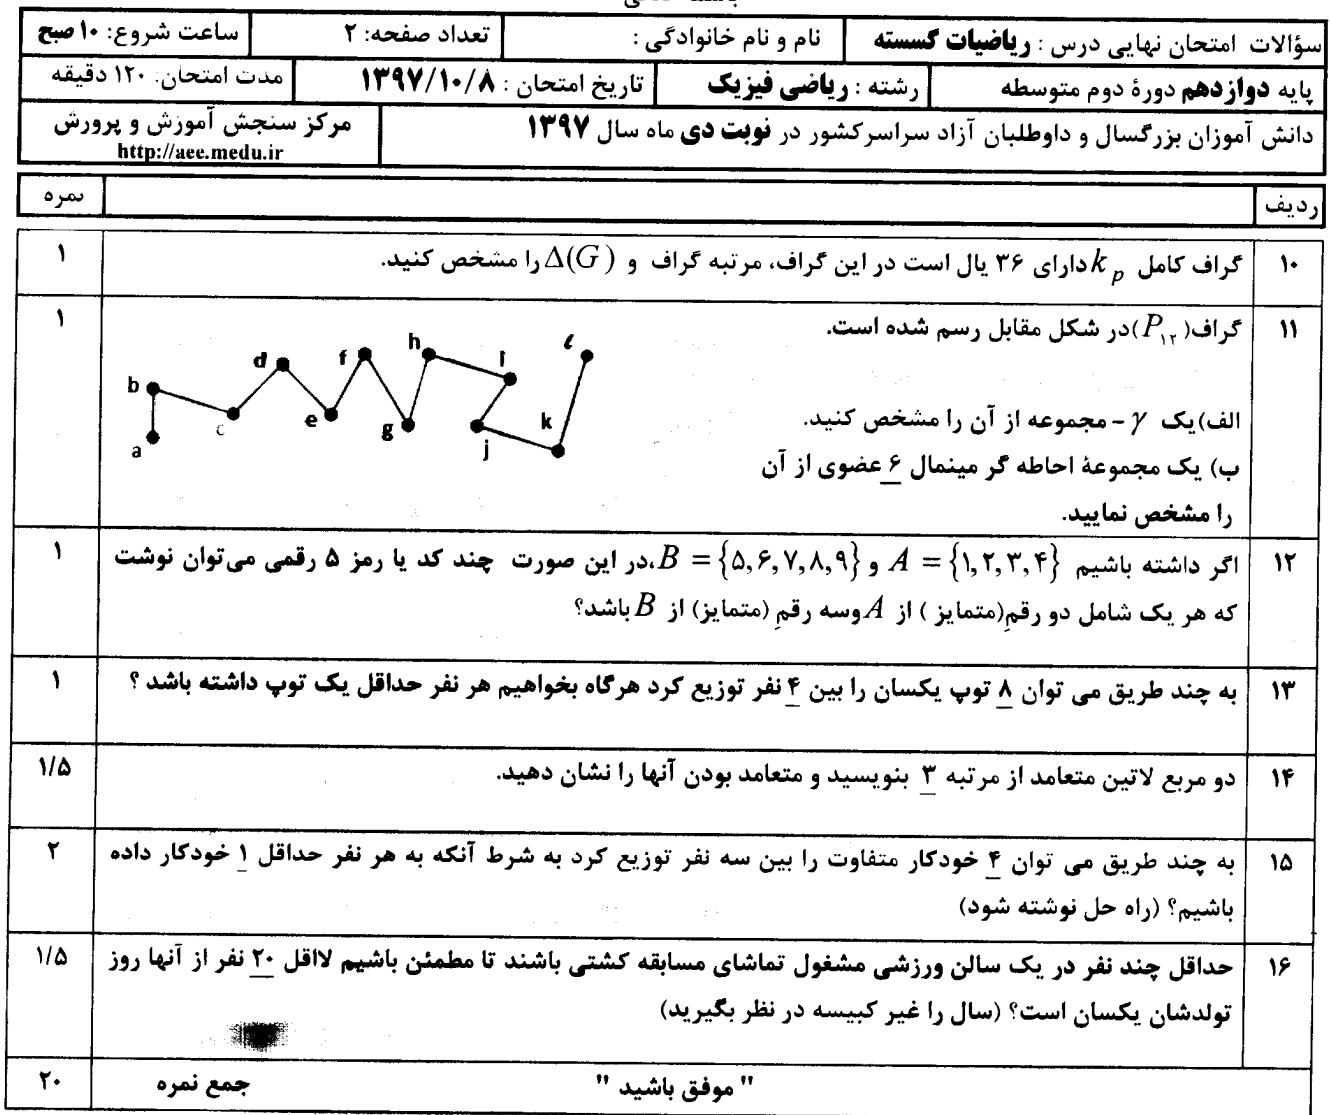 سؤالات امتحان نهایی درس : ریاضیات گسسته نام و نام خانوادگی : تعداد صفحه: ۲ ساعت شروع: ۱۰ صبح
پایه دوازدهم دورۀ دوم متوسطه رشته : ریاضی فیزیک تاریخ امتحان : ۱۳۹۷/۱۰/۸ مدت امتحان: ۱۲۰ دقیقه
دانش آموزان بزرگسال و داوطلبان آزاد سراسرکشور در نوبت دی ماه سال ۱۳۹۷ مرکز سنجش آموزش و پرورش
http://aee.medu.ir
ردیف نمره
۱۰ گراف کامل k_p دارای ۳۶ یال است در این گراف، مرتبه گراف و Δ(G) را مشخص کنید. ۱
۱۱ گراف( P_۱۲ )در شکل مقابل رسم شده است. ۱
a b c d e f g h i j k ℓ
الف)یک γ - مجموعه از آن را مشخص کنید.
ب) یک مجموعۀ احاطه گر مینمال ۶ عضوی از آن
را مشخص نمایید.
۱۲ اگر داشته باشیم A = {۱,۲,۳,۴} و B = {۵,۶,۷,۸,۹}،در این صورت چند کد یا رمز ۵ رقمی می‌توان نوشت ۱
که هر یک شامل دو رقمِ(متمایز ) از A وسه رقمِ (متمایز) از B باشد؟
۱۳ به چند طریق می توان ۸ توپ یکسان را بین ۴ نفر توزیع کرد هرگاه بخواهیم هر نفر حداقل یک توپ داشته باشد ؟ ۱
۱۴ دو مربع لاتین متعامد از مرتبه ۳ بنویسید و متعامد بودن آنها را نشان دهید. ۱/۵
۱۵ به چند طریق می توان ۴ خودکار متفاوت را بین سه نفر توزیع کرد به شرط آنکه به هر نفر حداقل ۱ خودکار داده ۲
باشیم؟ (راه حل نوشته شود)
۱۶ حداقل چند نفر در یک سالن ورزشی مشغول تماشای مسابقه کشتی باشند تا مطمئن باشیم لااقل ۲۰ نفر از آنها روز ۱/۵
تولدشان یکسان است؟ (سال را غیر کبیسه در نظر بگیرید)
" موفق باشید " جمع نمره ۲۰